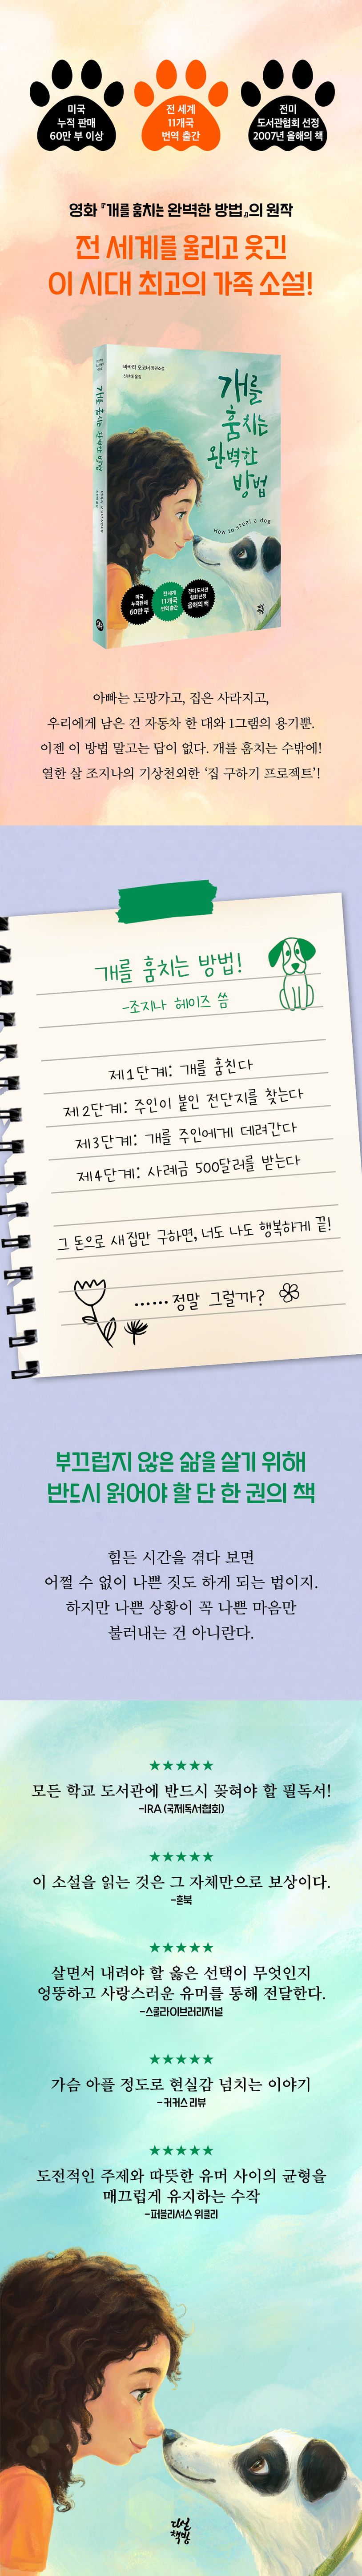 미국
누적 판매
60만 부 이상
전 세계
11개국
번역 출간
전미
도서관협회 선정
2007년 올해의 책
영화 『개를 훔치는 완벽한 방법』의 원작
전 세계를 울리고 웃긴
이 시대 최고의 가족 소설!
바바라 오코너 장편소설
신선해 옮김
개를
훔치는
완벽한
방법
How to steal a dog
개를 훔치는 완벽한 방법
미국
누적판매
60만 부
전 세계
11개국
번역 출간
전미 도서관
협회 선정
올해의 책
아빠는 도망가고, 집은 사라지고,
우리에게 남은 건 자동차 한 대와 1그램의 용기뿐.
이젠 이 방법 말고는 답이 없다. 개를 훔치는 수밖에!
열한 살 조지나의 기상천외한 ‘집 구하기 프로젝트’!
개를 훔치는 방법!
-조지나 헤이즈 씀
제1단계: 개를 훔친다
제2단계: 주인이 붙인 전단지를 찾는다
제3단계: 개를 주인에게 데려간다
제4단계: 사례금 500달러를 받는다
그 돈으로 새집만 구하면, 너도 나도 행복하게 끝!
……정말 그럴까?
부끄럽지 않은 삶을 살기 위해
반드시 읽어야 할 단 한 권의 책
힘든 시간을 겪다 보면
어쩔 수 없이 나쁜 짓도 하게 되는 법이지.
하지만 나쁜 상황이 꼭 나쁜 마음만
불러내는 건 아니란다.
★★★★★
모든 학교 도서관에 반드시 꽂혀야 할 필독서!
-IRA (국제독서협회)
★★★★★
이 소설을 읽는 것은 그 자체만으로 보상이다.
-혼북
★★★★★
살면서 내려야 할 옳은 선택이 무엇인지
엉뚱하고 사랑스러운 유머를 통해 전달한다.
-스쿨라이브러리저널
★★★★★
가슴 아플 정도로 현실감 넘치는 이야기
- 커커스 리뷰
★★★★★
도전적인 주제와 따뜻한 유머 사이의 균형을
매끄럽게 유지하는 수작
-퍼블리셔스 위클리
다산
책방